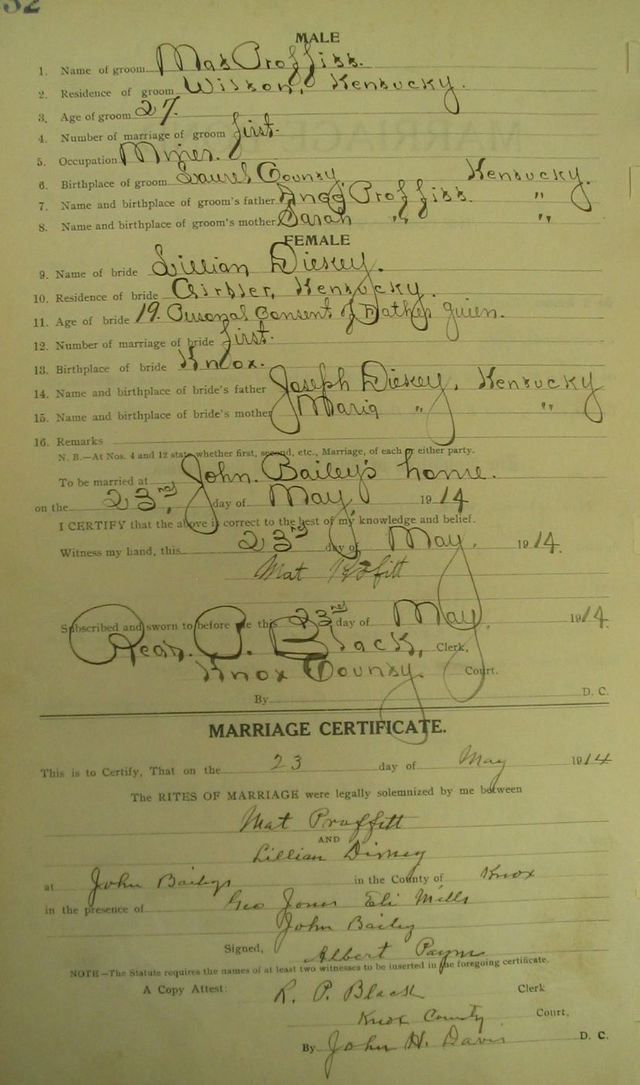 32
MALE
1. Name of groom Mat Proffitt.
2. Residence of groom Wilton, Kentucky.
3. Age of groom 27.
4. Number of marriage of groom first.
5. Occupation Miner.
6. Birthplace of groom Laurel County, Kentucky.
7. Name and birthplace of groom's father Proffitt. "
8. Name and birthplace of groom's mother Sarah " "
FEMALE
9. Name of bride Lillian Dickey.
10. Residence of bride Girdler, Kentucky.
11. Age of bride 19. Personal Consent of Father given.
12. Number of marriage of bride first.
13. Birthplace of bride Knox.
14. Name and birthplace of bride's father Joseph Dickey, Kentucky
15. Name and birthplace of bride's mother Maria " "
16. Remarks
N. B.—At Nos. 4 and 12 state whether first, second, etc., Marriage, of each or either party.
To be married at John Bailey's home.
on the 23rd day of May, 1914
I CERTIFY that the above is correct to the best of my knowledge and belief.
Witness my hand, this 23rd day of May, 1914.
Mat Proffitt
Subscribed and sworn to before me this 23rd day of May, 1914.
Read P. Black, Clerk,
Knox County Court.
By D. C.
MARRIAGE CERTIFICATE.
This is to Certify, That on the 23 day of May 1914
The RITES OF MARRIAGE were legally solemnized by me between
Mat Proffitt
AND
Lillian
at John Baileys in the County of Knox
in the presence of Geo Jones Eli Mills
John Bailey
Signed, Albert Payne
NOTE—The Statute requires the names of at least two witnesses to be inserted in the foregoing certificate.
A Copy Attest: R. P. Black Clerk
Knox County Court,
By John H. Davis D. C.